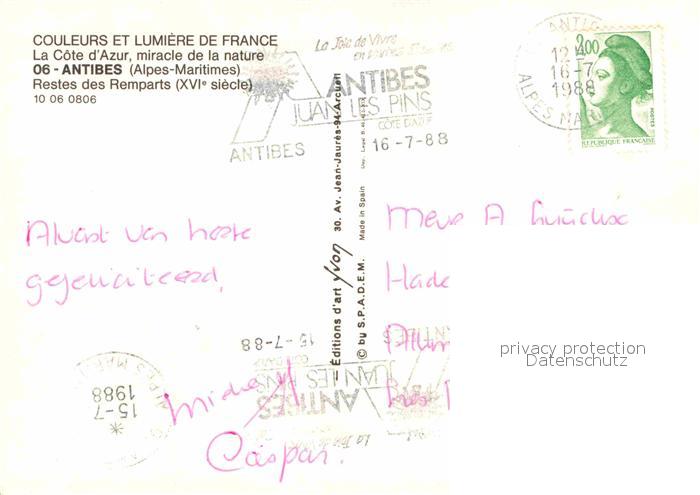 COULEURS ET LUMIÈRE DE FRANCE
La Côte d'Azur, miracle de la nature
06 - ANTIBES (Alpes-Maritimes)
Restes des Remparts (XVIe siècle)
10 06 0806
La Joie de Vivre
ANTIBES
JUAN LES PINS
CÔTE D'AZUR
ANTIBES
16-7-88
12 H
16-7
1988
ALPES MAR
2,00
POSTES
REPUBLIQUE FRANÇAISE
Alvast van harte
gefeliciteerd,
Michel
Caspar.
— Éditions d'art yvon 30, Av. Jean-Jaurès-94-Arcueil
© by S.P.A.D.E.M. Made in Spain
Mevr A
15-7-88
ANTIBES
JUAN LES PINS
15-7
1988
privacy protection
Datenschutz